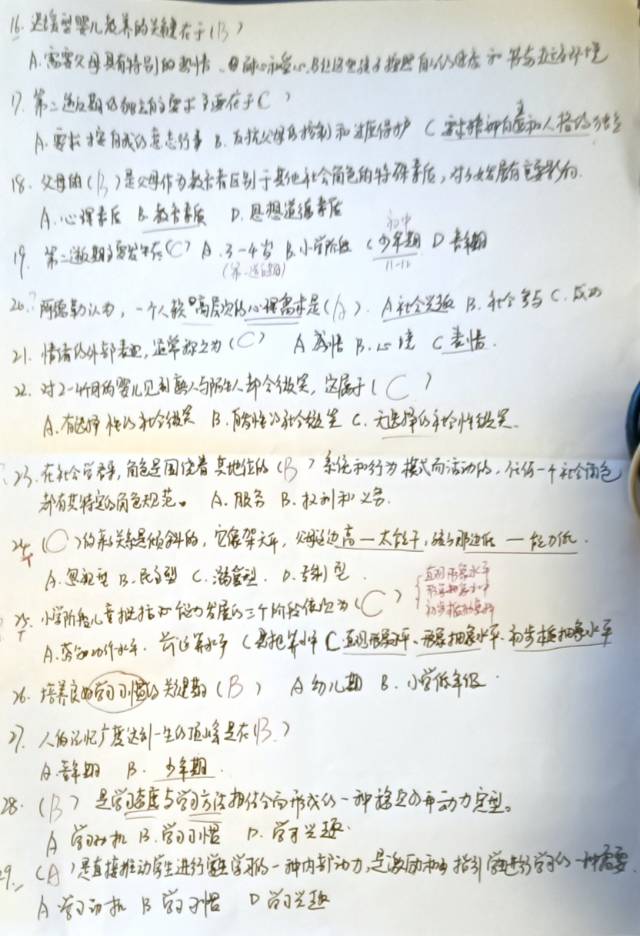 16. 迟缓型婴儿教养的关键在于(B)
A.需要父母具有特别的热情、耐心和爱心 B.让这些孩子按照自己的速度和特点适应环境
17. 第二逆反期的独立自主要求主要在于C)
A.要求按自我的意志行事 B.反抗父母的控制和过度保护 C 要求精神自主和人格的独立
18. 父母的(B)是父母作为教育者区别于其他社会角色的特殊素质,对子女发展有重要影响.
A.心理素质 B.教育素质 D.思想道德素质
初中
19. 第二逆反期主要发生在(C) A.3-4岁 B.小学阶段 C 少年期 D 青年期
(第一逆反期) 11-12
20. 阿德勒认为,一个人较高层次的心理需求是(A). A社会兴趣 B.社会参与 C.成功
21. 情绪的外部表现,通常称之为(C) A 感情 B.心境 C 表情.
22. 对2-4个月的婴儿见到熟人与陌生人都会微笑,这属于(C)
A.有选择性的社会微笑 B.自发性的社会微笑 C.无选择的社会性微笑.
23. 在社会学看来,角色是围绕着其地位的(B)系统和行为模式而活动的,任何一个社会角色
都有其特定的角色规范。 A.服务 B.权利和义务.
24. (C)的亲子关系是倾斜的,它像架天平,父母这边高—太能干,孩子那边低—能力低.
A.忽视型 B.民主型 C.溺爱型. D.专制型.
直观形象水平
形象抽象水平
初步抽象水平
25. 小学阶段儿童概括和能力发展的三个阶段依次为(C)
C 直观形象水平、形象抽象水平、初步抽象水平
26. 培养良好学习习惯的关键期(B) A 幼儿期 B.小学低年级.
27. 人的记忆广度达到一生的顶峰是在(B.)
A.青年期 B.少年期.
28. (B)是学习态度与学习方法相结合而形成的一种稳定的动力定型。
A 学习动机 B.学习习惯 D.学习兴趣.
29. (A)是直接推动学生进行学习的一种内部动力,是激励和指引学生进行学习的一种需要.
A 学习动机 B 学习习惯 D 学习兴趣